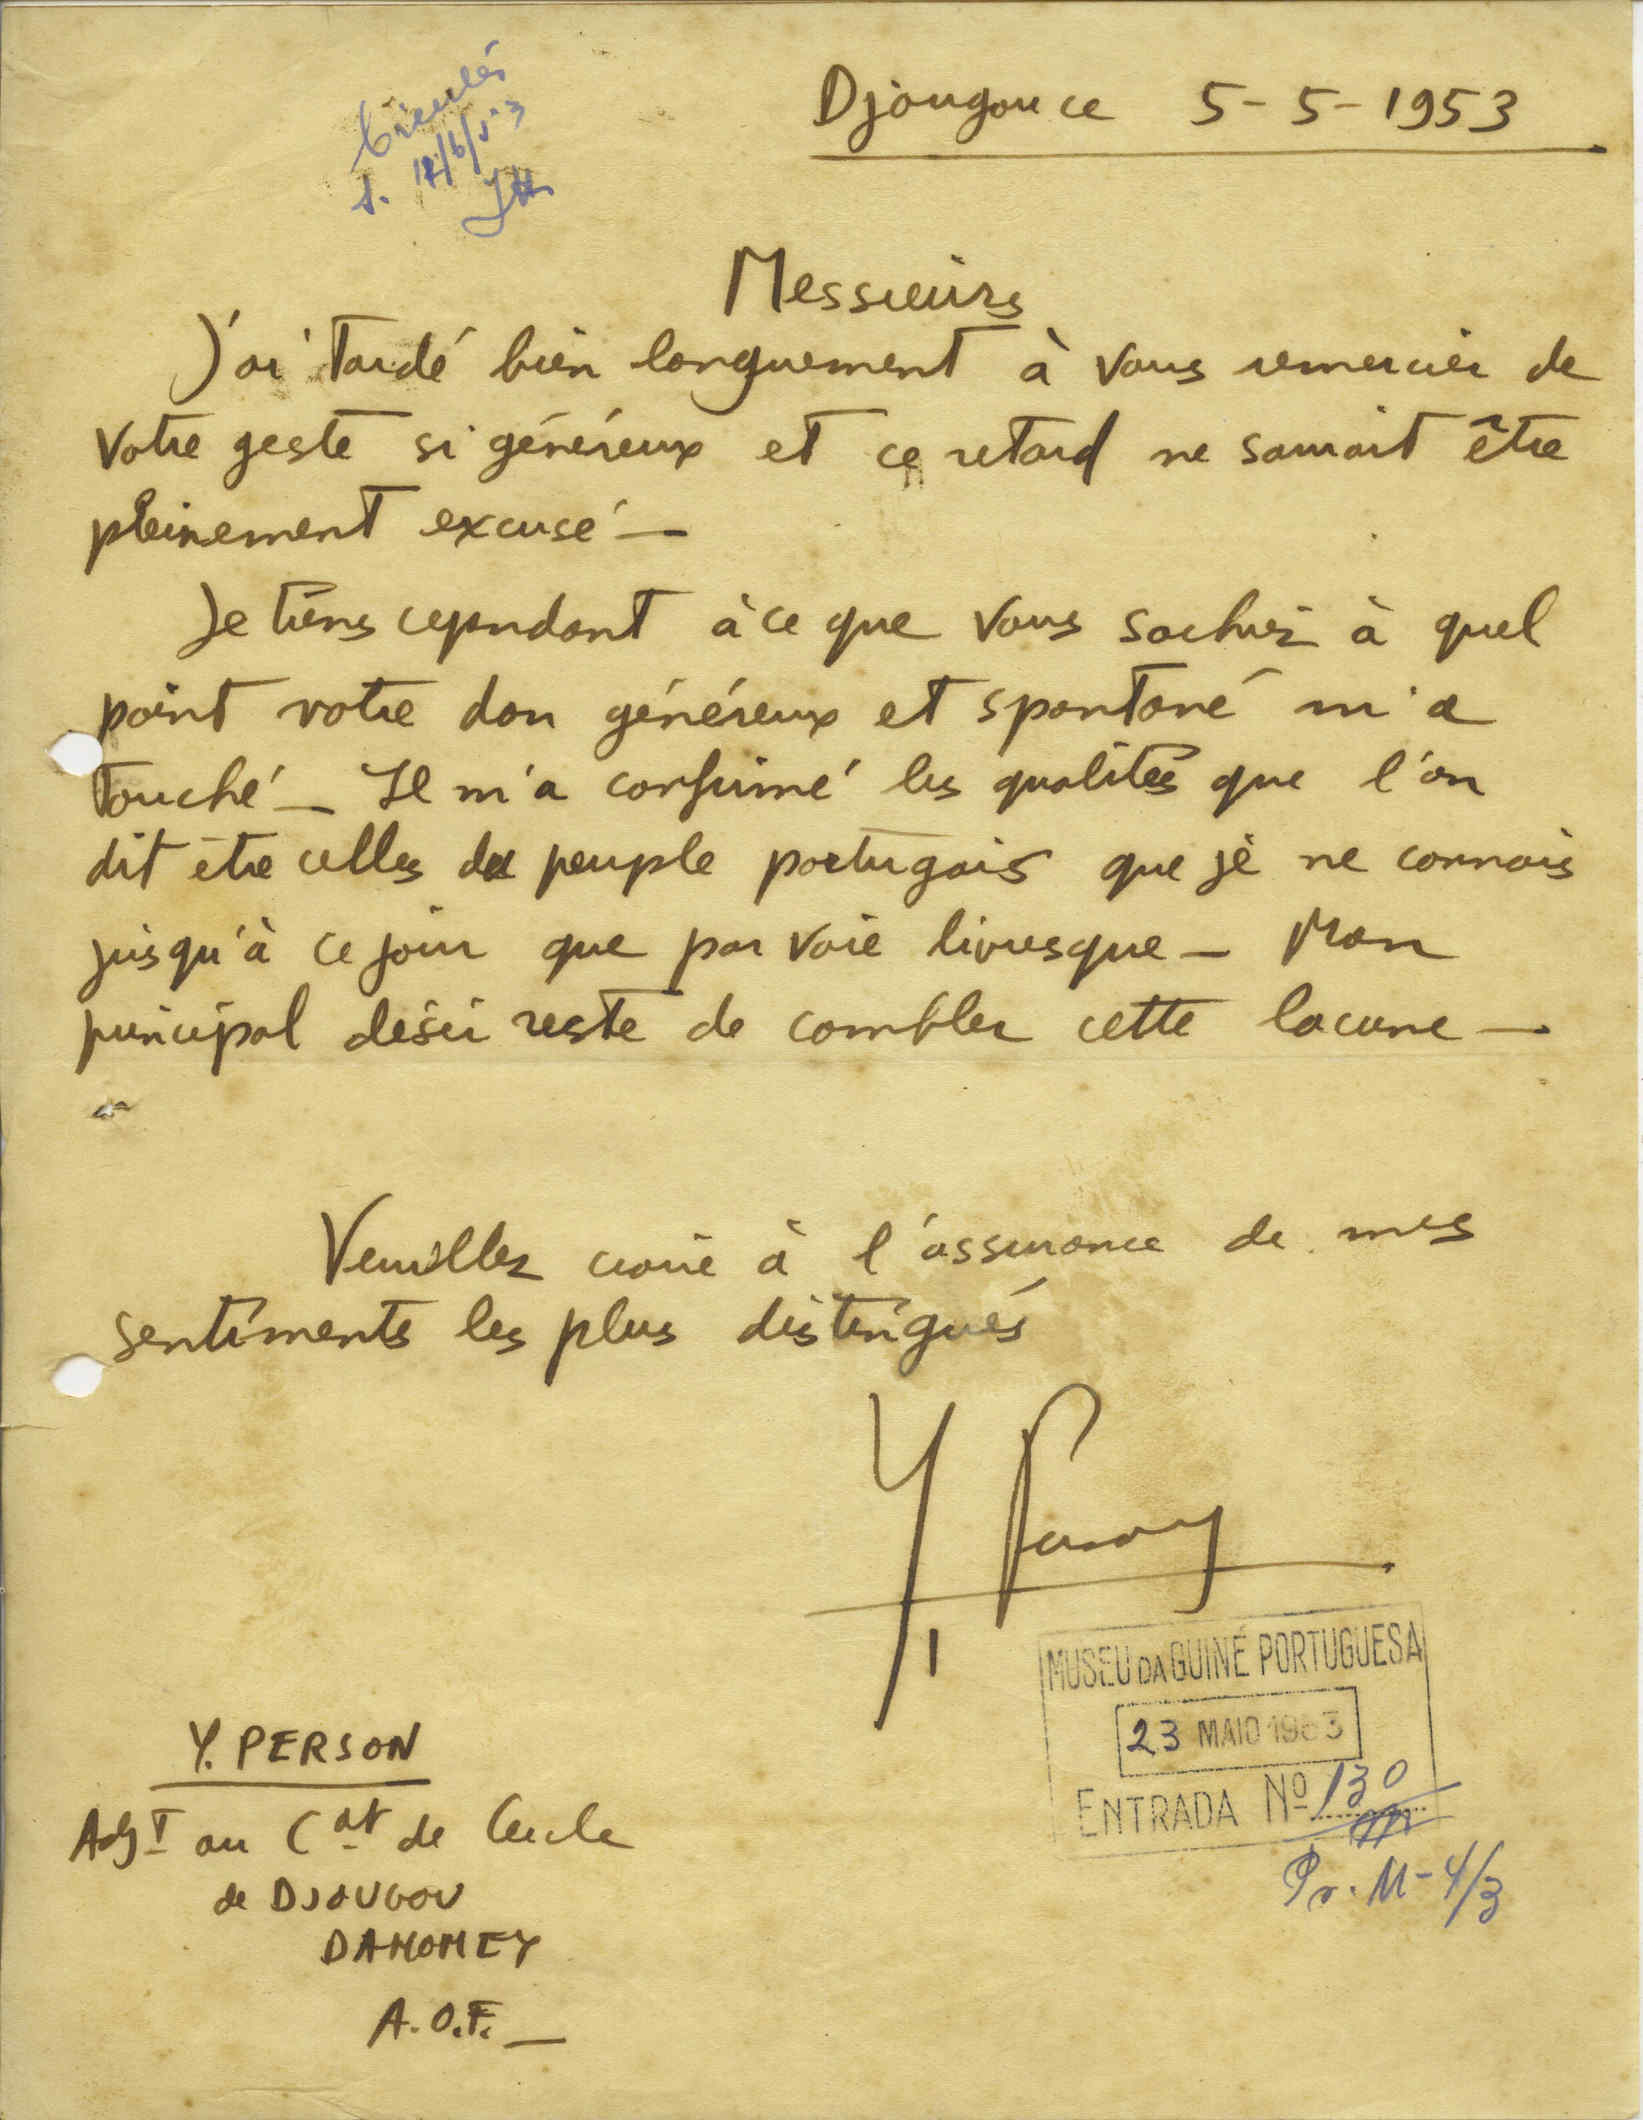 Djougou ce 5-5-1953
Messieurs
J'ai tardé bien longuement à vous remercier de
votre geste si généreux et ce retard ne saurait être
pleinement excusé —
Je tiens cependant à ce que vous sachiez à quel
point votre don généreux et spontané m'a
touché — Il m'a confirmé les qualités que l'on
dit être celles du peuple portugais que je ne connais
jusqu'à ce jour que par voie livresque — Mon
principal désir reste de combler cette lacune —
Veuillez croire à l'assurance de mes
sentiments les plus distingués
Y. Person
MUSEU DA GUINÉ PORTUGUESA
23 MAIO 1953
ENTRADA Nº 130
Pr. M-4/3
Y. PERSON
Adjt au Cdt de Cercle
de DJOUGOU
DAHOMEY
A.O.F. —